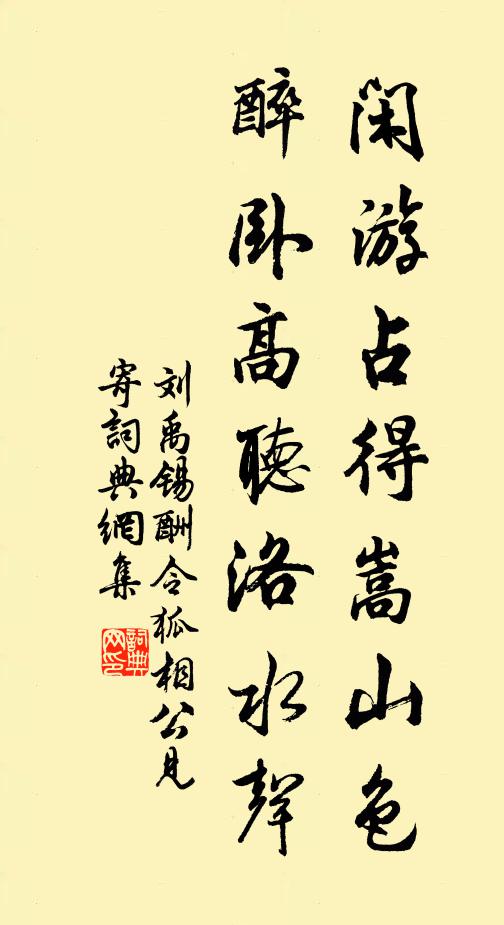 闲游占得嵩山色
醉卧高聽洛水聲
刘禹锡酬令狐相公見
寄詞典網集
詞典网印